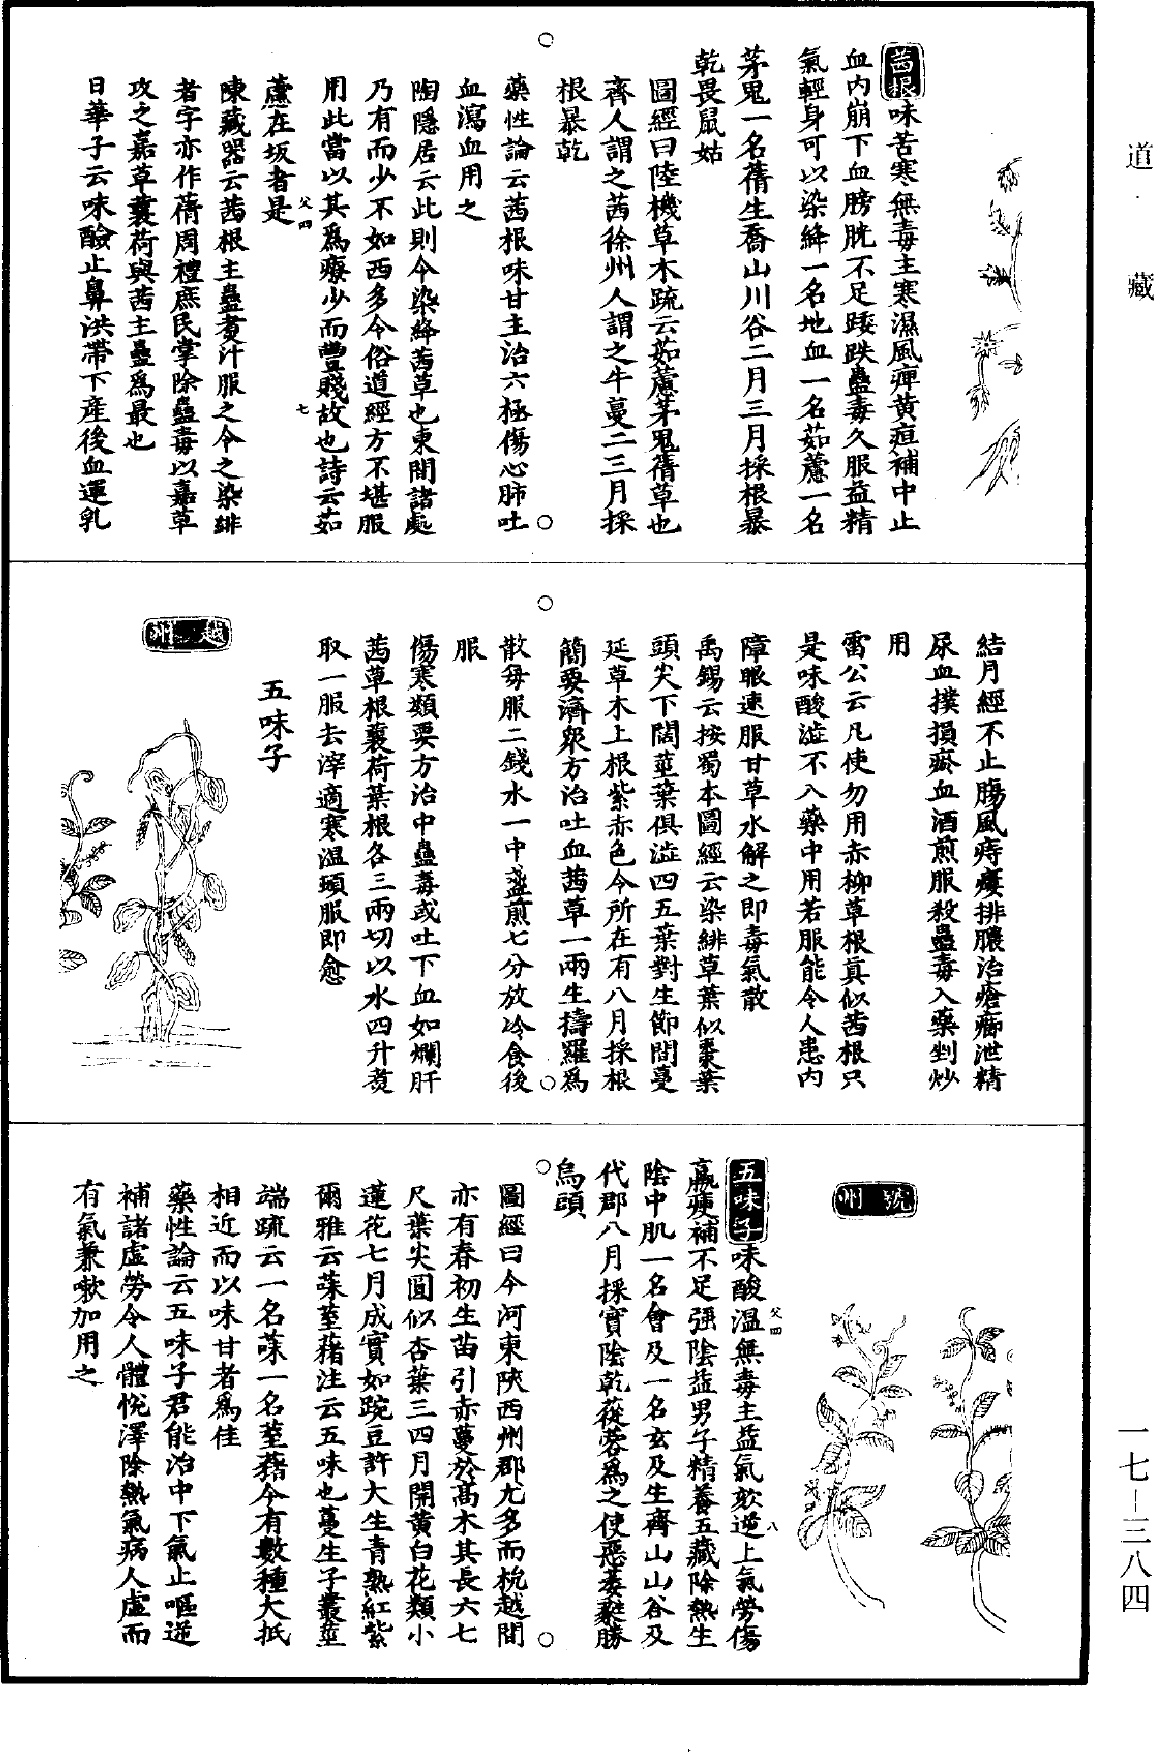 道藏
茜根味苦寒無毒主寒濕風痺黃疸補中止
血內崩下血膀胱不足踒跌蠱毒久服益精
氣輕身可以染絳一名地血一名茹藘一名
茅蒐一名蒨生喬山川谷二月三月採根暴
乾畏鼠姑
圖經曰陸機草木疏云茹藘茅蒐蒨草也
齊人謂之茜徐州人謂之牛蔓二三月採
根暴乾
藥性論云茜根味甘主治六極傷心肺吐
血瀉血用之
陶隱居云此則今染絳茜草也東間諸處
乃有而少不如西多今俗道經方不堪服
用此當以其為療少而豐賤故也詩云茹
藘在坂者是
父四
七
陳藏器云茜根主蠱煑汁服之今之染緋
者字亦作蒨周禮庶民掌除蠱毒以嘉草
攻之嘉草蘘荷與茜主蠱為最也
日華子云味酸止鼻洪帶下產後血運乳
結月經不止腸風痔瘻排膿治瘡癤泄精
尿血撲損瘀血酒煎服殺蠱毒入藥剉炒
用
雷公云凡使勿用赤柳草根真似茜根只
是味酸澁不入藥中用若服能令人患內
障眼速服甘草水解之即毒氣散
禹錫云按蜀本圖經云染緋草葉似棗葉
頭尖下闊莖葉俱澁四五葉對生節間蔓
延草木上根紫赤色今所在有八月採根
簡要濟衆方治吐血茜草一兩生擣羅為
散每服二錢水一中盞煎七分放冷食後
服
傷寒類要方治中蠱毒或吐下血如爛肝
茜草根蘘荷葉根各三兩切以水四升煑
取一服去滓適寒温頓服即愈
五味子
越州
虢州
五味子味酸温無毒主益氣欬逆上氣勞傷
羸瘦補不足强陰益男子精養五藏除熱生
陰中肌一名會及一名玄及生齊山山谷及
代郡八月採實陰乾蓯蓉為之使惡萎蕤勝
烏頭
父四
八
圖經曰今河東陝西州郡尤多而杭越間
亦有春初生苗引赤蔓於高木其長六七
尺葉尖圓似杏葉三四月開黃白花類小
蓮花七月成實如豌豆許大生青熟紅紫
爾雅云菋荎蕏注云五味也蔓生子叢莖
端疏云一名菋一名荎蕏今有數種大抵
相近而以味甘者為佳
藥性論云五味子君能治中下氣止嘔逆
補諸虛勞令人體悅澤除熱氣病人虛而
有氣兼嗽加用之
一七－三八四